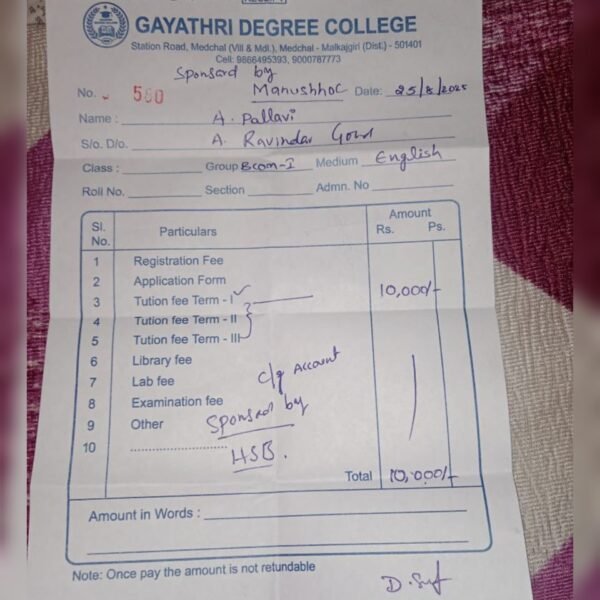 RECEIPT
GAYATHRI DEGREE COLLEGE
Station Road, Medchal (Vill & Mdl.), Medchal - Malkajgiri (Dist.) - 501401
Cell: 9866495393, 9000787773
Sponsard by
Manushhoc
No. 560 Date: 25/8/2025
Name : A. Pallavi
S/o. D/o. A. Ravindar Goud
Class : Group Bcom-I Medium English
Roll No. Section Admn. No
Sl. No. Particulars Amount Rs. Ps.
1 Registration Fee
2 Application Form
3 Tution fee Term - I ✓ 10,000/-
4 Tution fee Term - II
5 Tution fee Term - III
6 Library fee
7 Lab fee c/q Account
8 Examination fee
9 Other Sponsard by
10 HSB.
Total 10,000/-
Amount in Words :
Note: Once pay the amount is not refundable